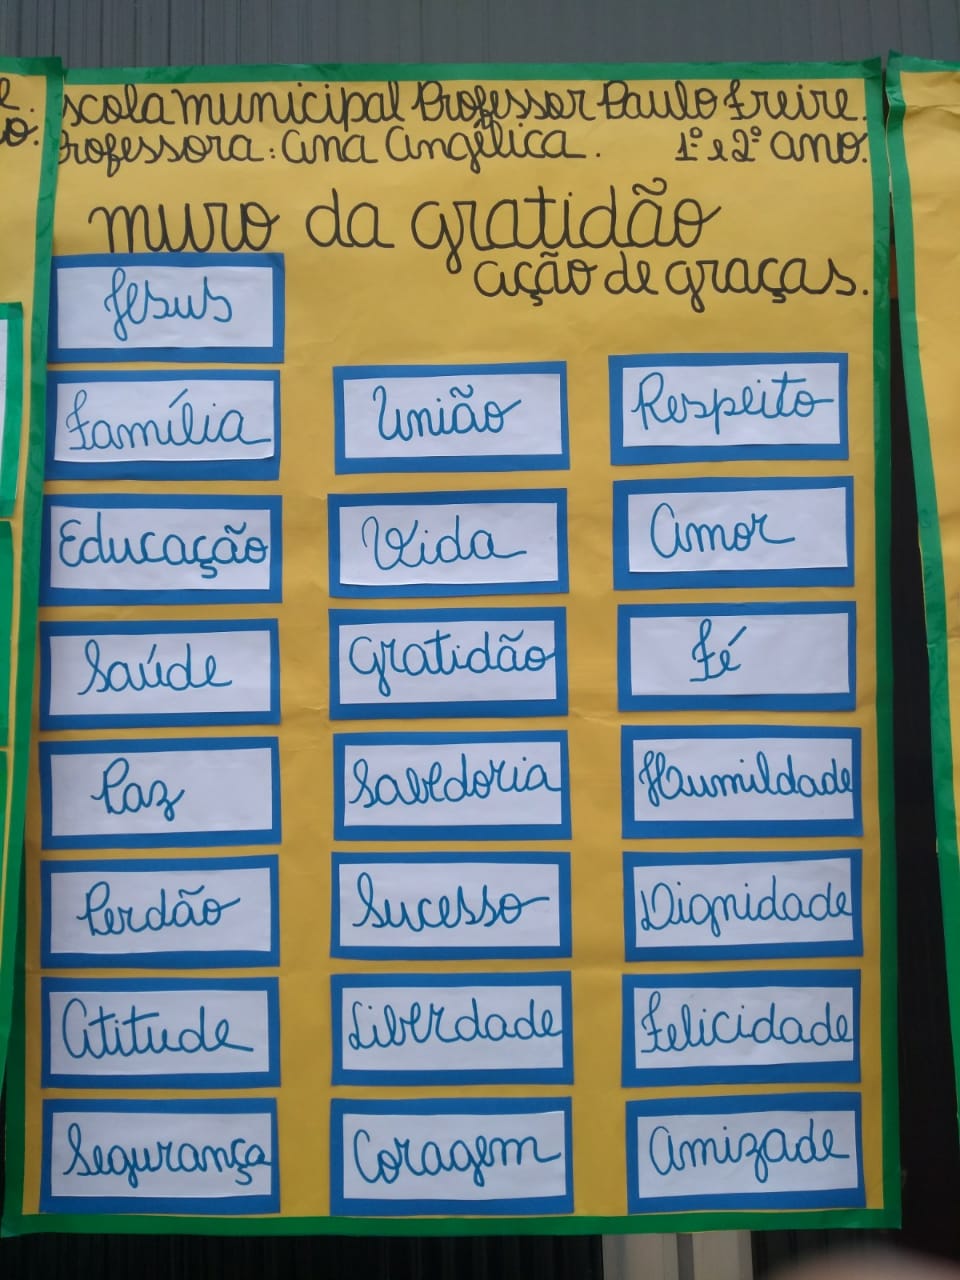 scola municipal Professor Paulo Freire.
Professora: Ana Angélica. 1º e 2º ano.
muro da gratidão
ação de graças.
Jesus
Família
Educação
Saúde
Paz
Perdão
Atitude
Segurança
União
Vida
Gratidão
Sabedoria
Sucesso
Liberdade
Coragem
Respeito
Amor
Fé
Humildade
Dignidade
Felicidade
Amizade